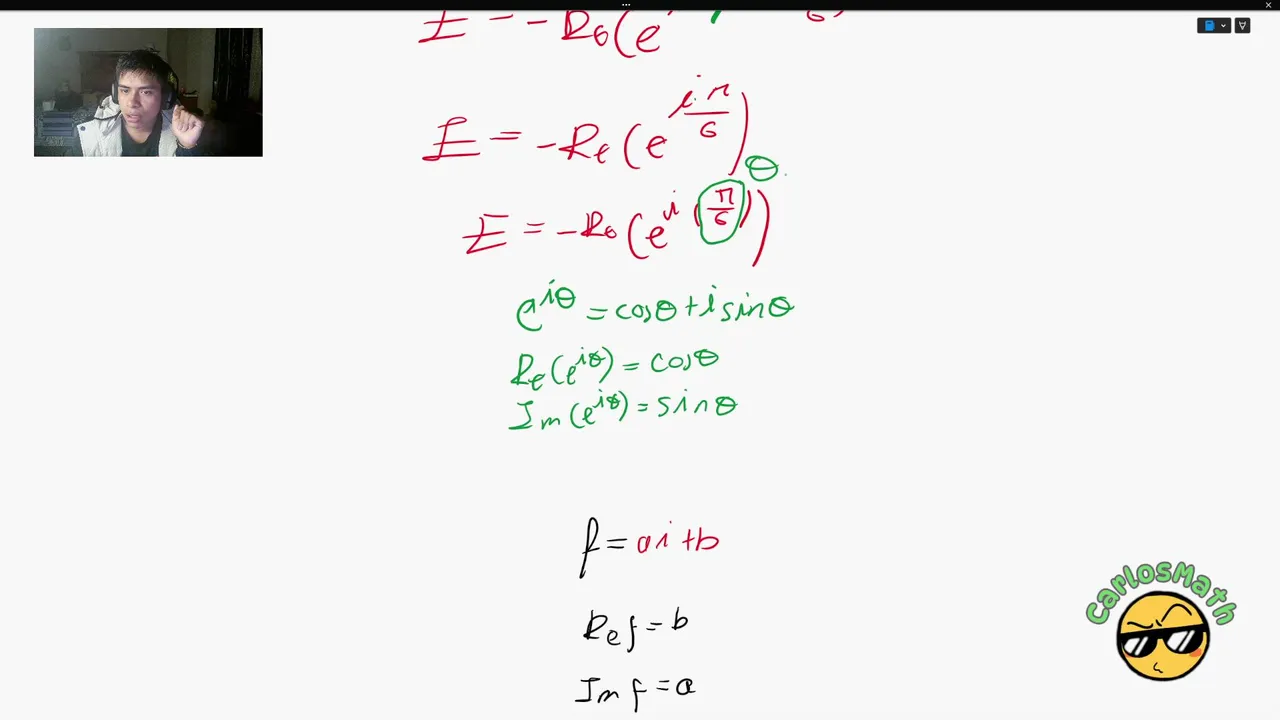 E = -Re(e
E = -Re(e^{iπ/6})
θ
E = -Re(e^{i(π/6)})
e^{iθ} = cosθ + i sinθ
Re(e^{iθ}) = cosθ
Im(e^{iθ}) = sinθ
f = ai + b
Re f = b
Im f = a
CarlosMath